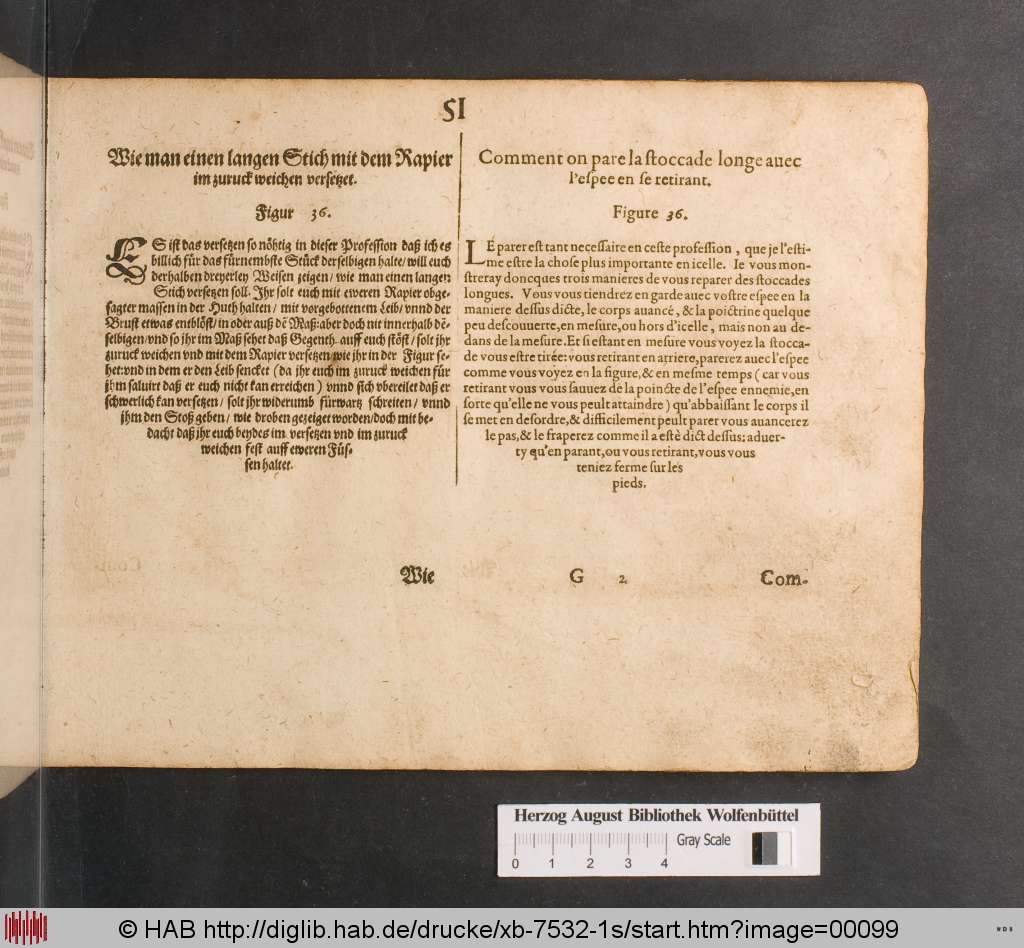 51
Wie man einen langen Stich mit dem Rapier
im zuruck weichen versetzet.
Figur 36.
ES ist das versetzen so nöhtig in dieser Profession daß ich es
billich für das fürnembste Stück derselbigen halte/ will euch
derhalben dreyerley Weisen zeigen/ wie man einen langen
Stich versetzen soll. Ihr solt euch mit eweren Rapier obge-
sagter massen in der Huth halten/ mit vorgebottenem Leib/ vnnd der
Brust etwas entblöst/ in oder auß dē Maß: aber doch nit innerhalb dē-
selbigen/ vnd so jhr im Maß sehet daß Gegenth. auff euch stöst/ solt jhr
zuruck weichen vnd mit dem Rapier versetzen wie jhr in der Figur se-
het: vnd in dem er den Leib sencket (da jhr euch im zuruck weichen für
jhm salvirt daß er euch nicht kan erreichen) vnnd sich vbereilet daß er
schwerlich kan versetzen/ solt jhr widerumb fürwartz schreiten/ vnnd
jhm den Stoß geben/ wie droben gezeiget worden/ doch mit be-
dacht daß jhr euch beydes im versetzen vnd im zuruck
weichen fest auff eweren Füs-
sen haltet.
Wie
Comment on pare la stoccade longe auec
l'espee en se retirant.
Figure 36.
LE parer est tant necessaire en ceste profession, que je l'esti-
me estre la chose plus importante en icelle. Ie vous mon-
streray doncques trois manieres de vous reparer des stoccades
longues. Vous vous tiendrez en garde auec vostre espee en la
maniere dessus dicte, le corps auancé, & la poictrine quelque
peu descouuerte, en mesure, ou hors d'icelle, mais non au de-
dans de la mesure. Et si estant en mesure vous voyez la stocca-
de vous estre tirée: vous retirant en arriere, parerez auec l'espee
comme vous voyez en la figure, & en mesme temps (car vous
retirant vous vous sauuez de la poincte de l'espee ennemie, en
sorte qu'elle ne vous peult attaindre) qu'abbaissant le corps il
se met en desordre, & difficilement peult parer vous auancerez
le pas, & le fraperez comme il a estè dict dessus: aduer-
ty qu'en parant, ou vous retirant, vous vous
teniez ferme sur les
pieds.
G 2
Com-
Herzog August Bibliothek Wolfenbüttel
Gray Scale
0 1 2 3 4
© HAB http://diglib.hab.de/drucke/xb-7532-1s/start.htm?image=00099